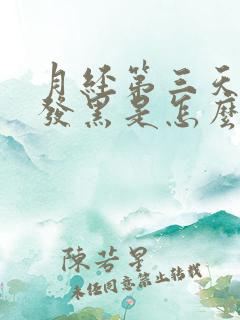 月经第三天
發黑是怎麼
陳若星
未经同意禁止转载